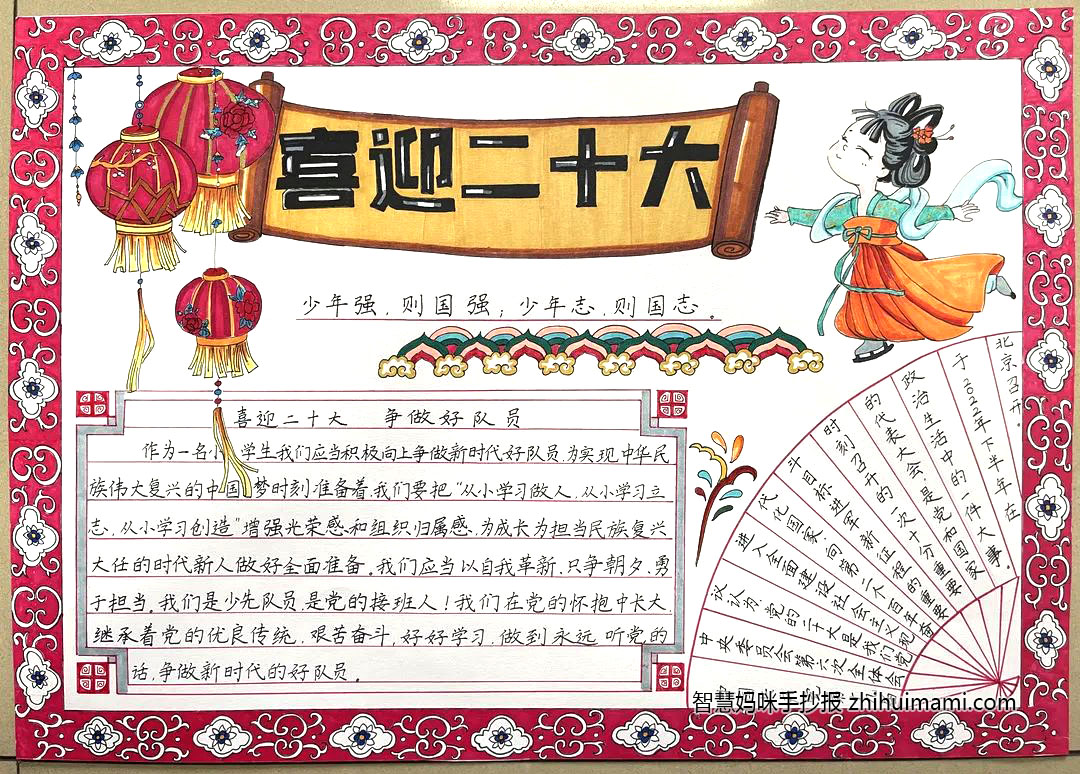 喜迎二十大
少年强,则国强;少年志,则国志。
喜迎二十大 争做好队员
作为一名小学生我们应当积极向上争做新时代好队员,为实现中华民
族伟大复兴的中国梦时刻准备着,我们要把“从小学习做人,从小学习立
志,从小学习创造”增强光荣感和组织归属感,为成长为担当民族复兴
大任的时代新人做好全面准备。我们应当以自我革新,只争朝夕,勇
于担当。我们是少先队员,是党的接班人!我们在党的怀抱中长大,
继承着党的优良传统,艰苦奋斗,好好学习,做到永远听党的
话,争做新时代的好队员。
中央委员会第六次全体会
议认为:党的二十大是我们党
进入全面建设社会主义现
代化国家,向第二个百年奋
斗目标进军新征程的重要
时刻召开的一次十分重要
的代表大会,是党和国家
政治生活中的一件大事。
于2022年下半年在
北京召开。
智慧妈咪手抄报 zhihuimami.com